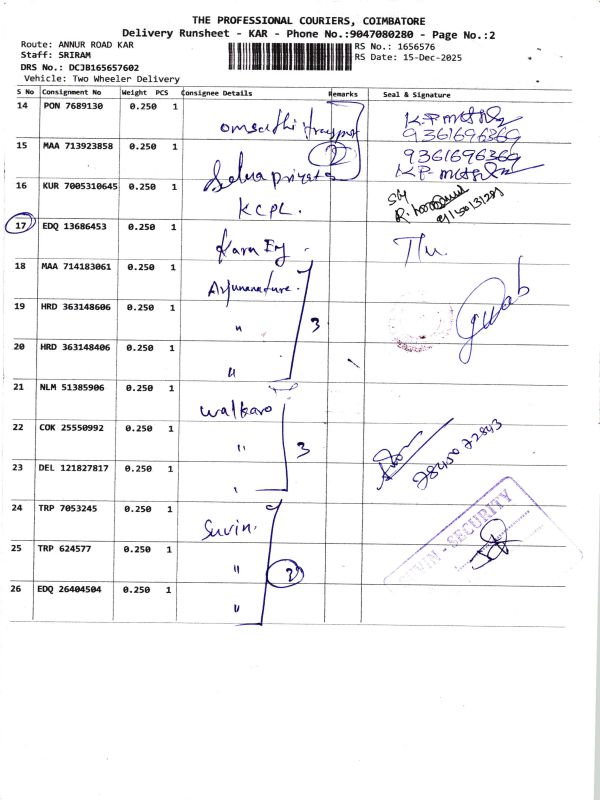 THE PROFESSIONAL COURIERS, COIMBATORE
Delivery Runsheet - KAR - Phone No.:9047080280 - Page No.:2
Route: ANNUR ROAD KAR
Staff: SRIRAM
DRS No.: DCJB165657602
Vehicle: Two Wheeler Delivery
RS No.: 1656576
RS Date: 15-Dec-2025
S No Consignment No Weight PCS Consignee Details Remarks Seal & Signature
14 PON 7689130 0.250 1
9361696369
15 MAA 713923858 0.250 1
9361696369
16 KUR 7005310645 0.250 1 KCPL.
17 EDQ 13686453 0.250 1
18 MAA 714183061 0.250 1
19 HRD 363148606 0.250 1 " 3
20 HRD 363148406 0.250 1 "
21 NLM 51385906 0.250 1 walkaro
22 COK 25550992 0.250 1 " 3
23 DEL 121827817 0.250 1 "
24 TRP 7053245 0.250 1 Suvin.
25 TRP 624577 0.250 1 "
26 EDQ 26404504 0.250 1 "
SUVIN - SECURITY